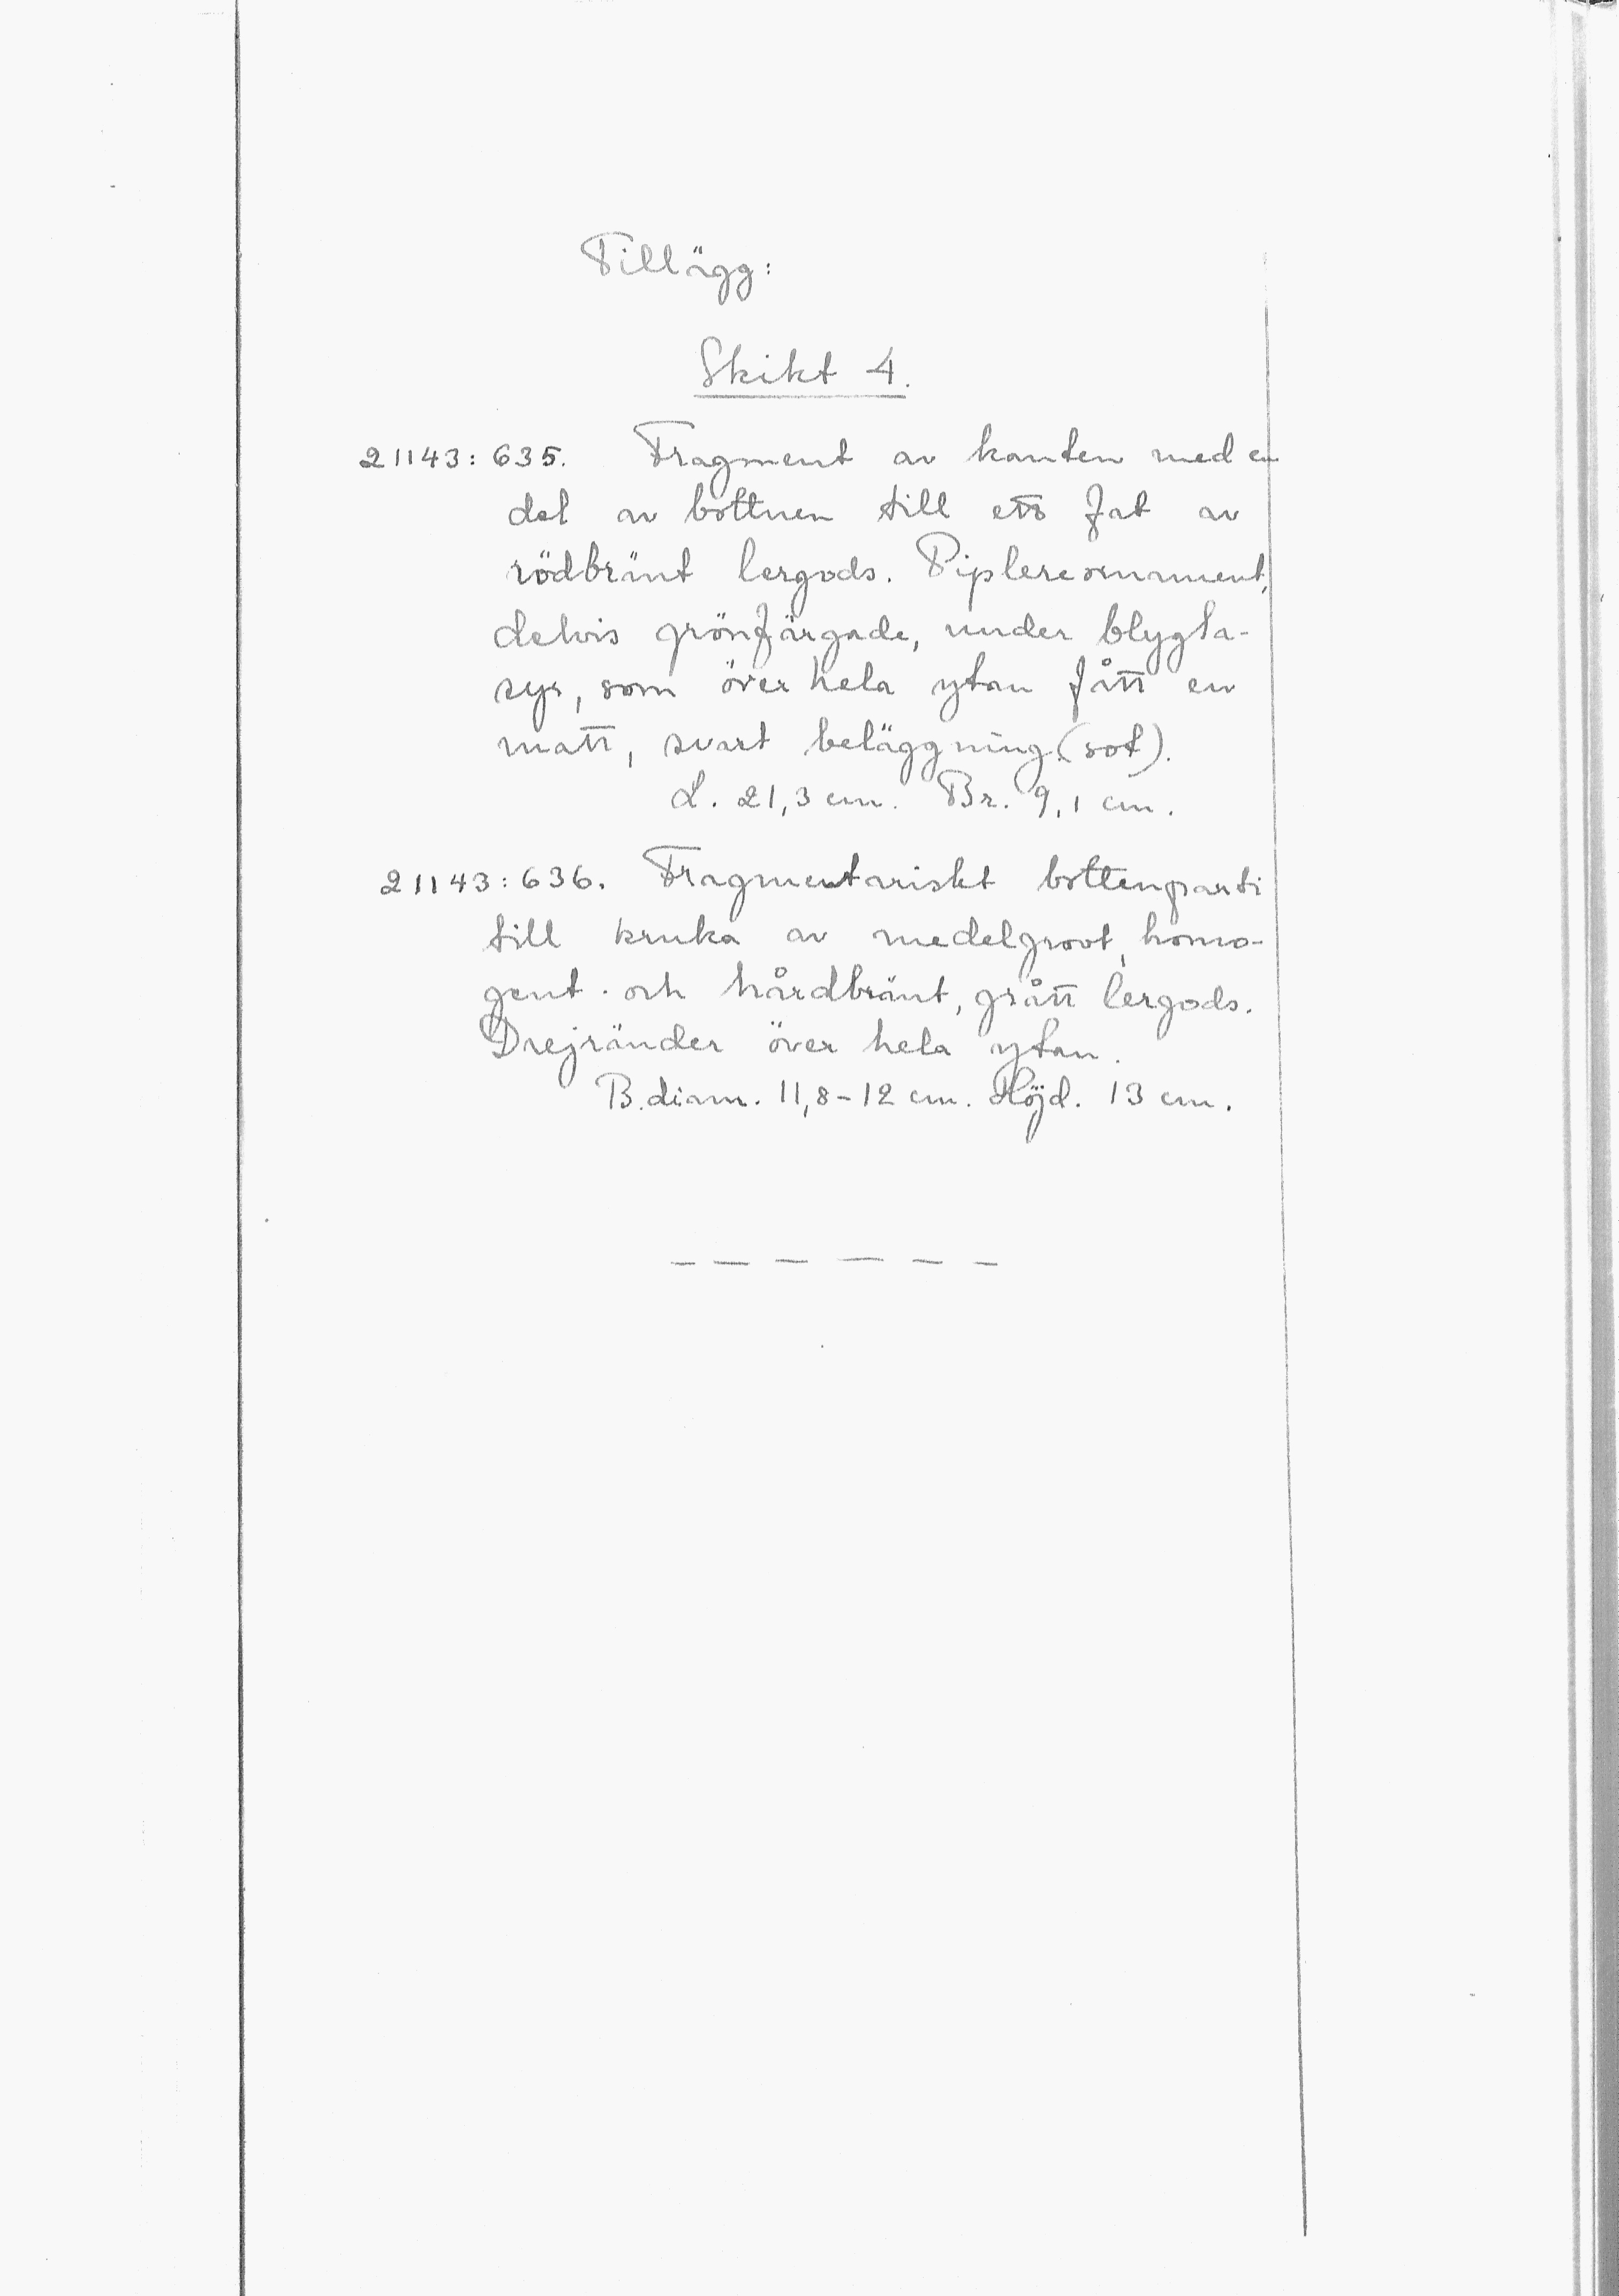 Tillägg:
Skikt 4.
21143:635. Fragment av kanten med en
del av bottnen till ett fat av
rödbränt lergods. Piplereornament,
delvis grönfärgade, under blygla-
syr, som över hela ytan fått en
matt, svart beläggning (sot).
L. 21,3 cm. Br. 9,1 cm.
21143:636. Fragmentariskt bottenparti
till kruka av medelgrovt, homo-
gent och hårdbränt, grått lergods.
Drejränder över hela ytan.
B.diam. 11,8-12 cm. Höjd. 13 cm.